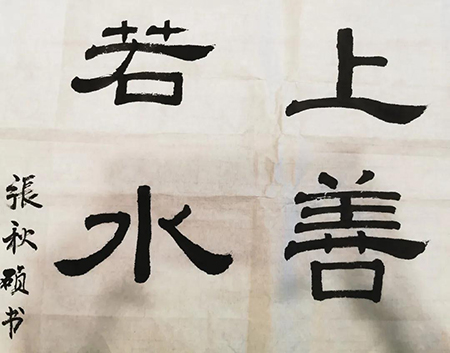 上善
若水
張秋碩书